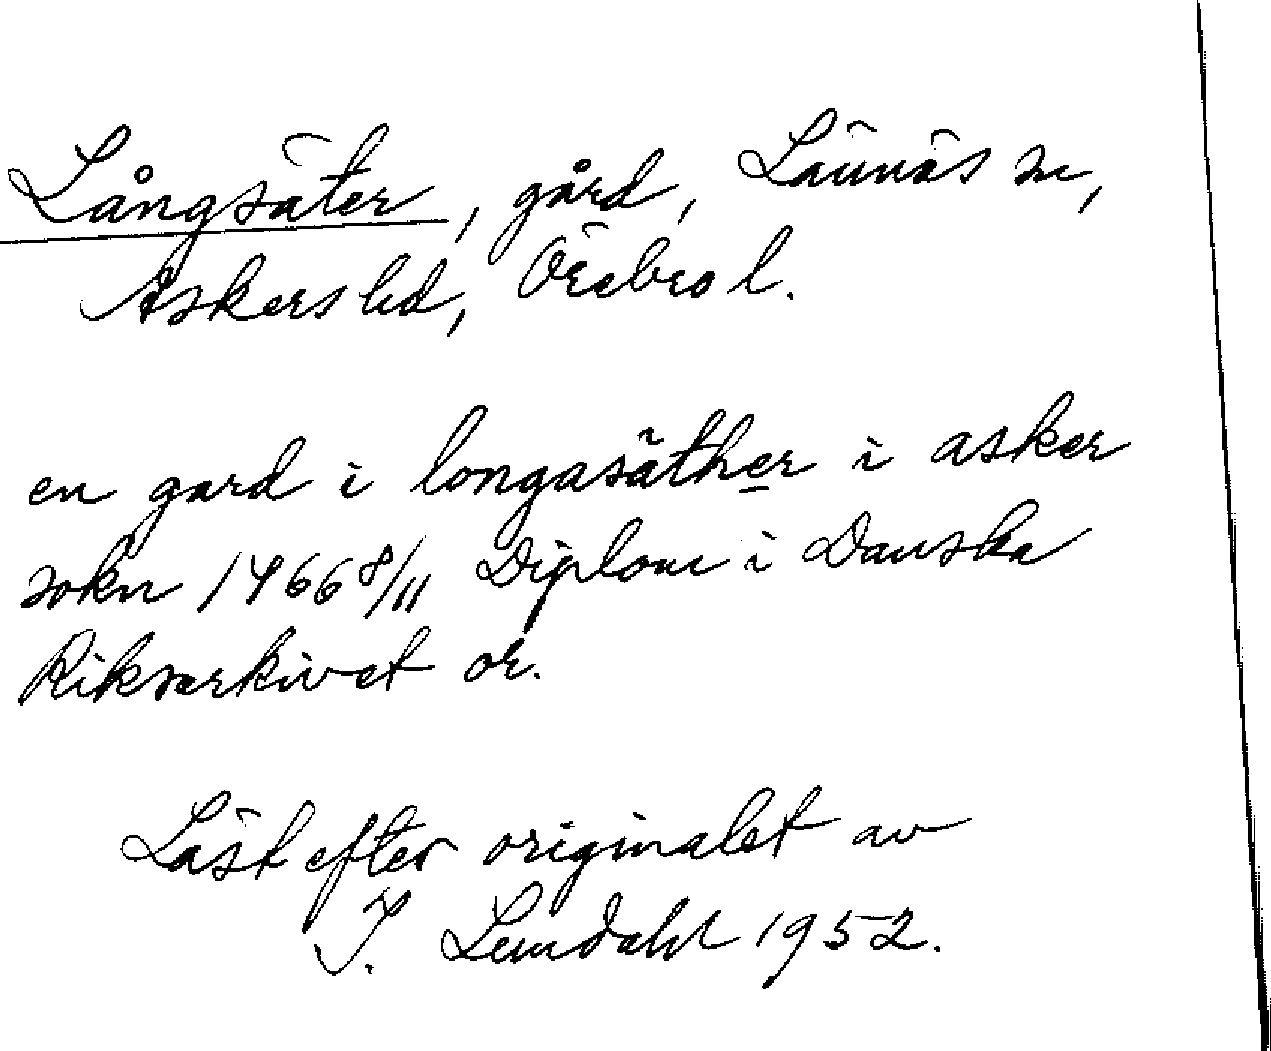 Långsäter, gård, Lännäs sn,
Askers hd, Örebro l.
en gard i longasäther i asker
sokn 1466 8/11 Diplom i Danska
Riksarkivet or.
Läst efter originalet av
I. Lundahl 1952.